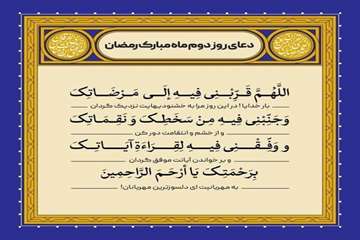 دعای روز دوم ماه مبارک رمضان
اللَّهُمَّ قَرِّبْنِي فِيهِ إِلَى مَرْضَاتِكَ
بار خدایا! در این روز مرا به خشنودیهایت نزدیک گردان
وَجَنِّبْنِي فِيهِ مِنْ سَخَطِكَ وَ نَقِمَاتِكَ
و از خشم و انتقامت دور کن
و وَفِّقْنِي فِيهِ لِقِرَاءَةِ آيَاتِكَ
و بر خواندن آیاتت موفق گردان
بِرَحْمَتِكَ يَا أَرْحَمَ الرَّاحِمِينَ
به مهربانیت ای دلسوزترین مهربانان!